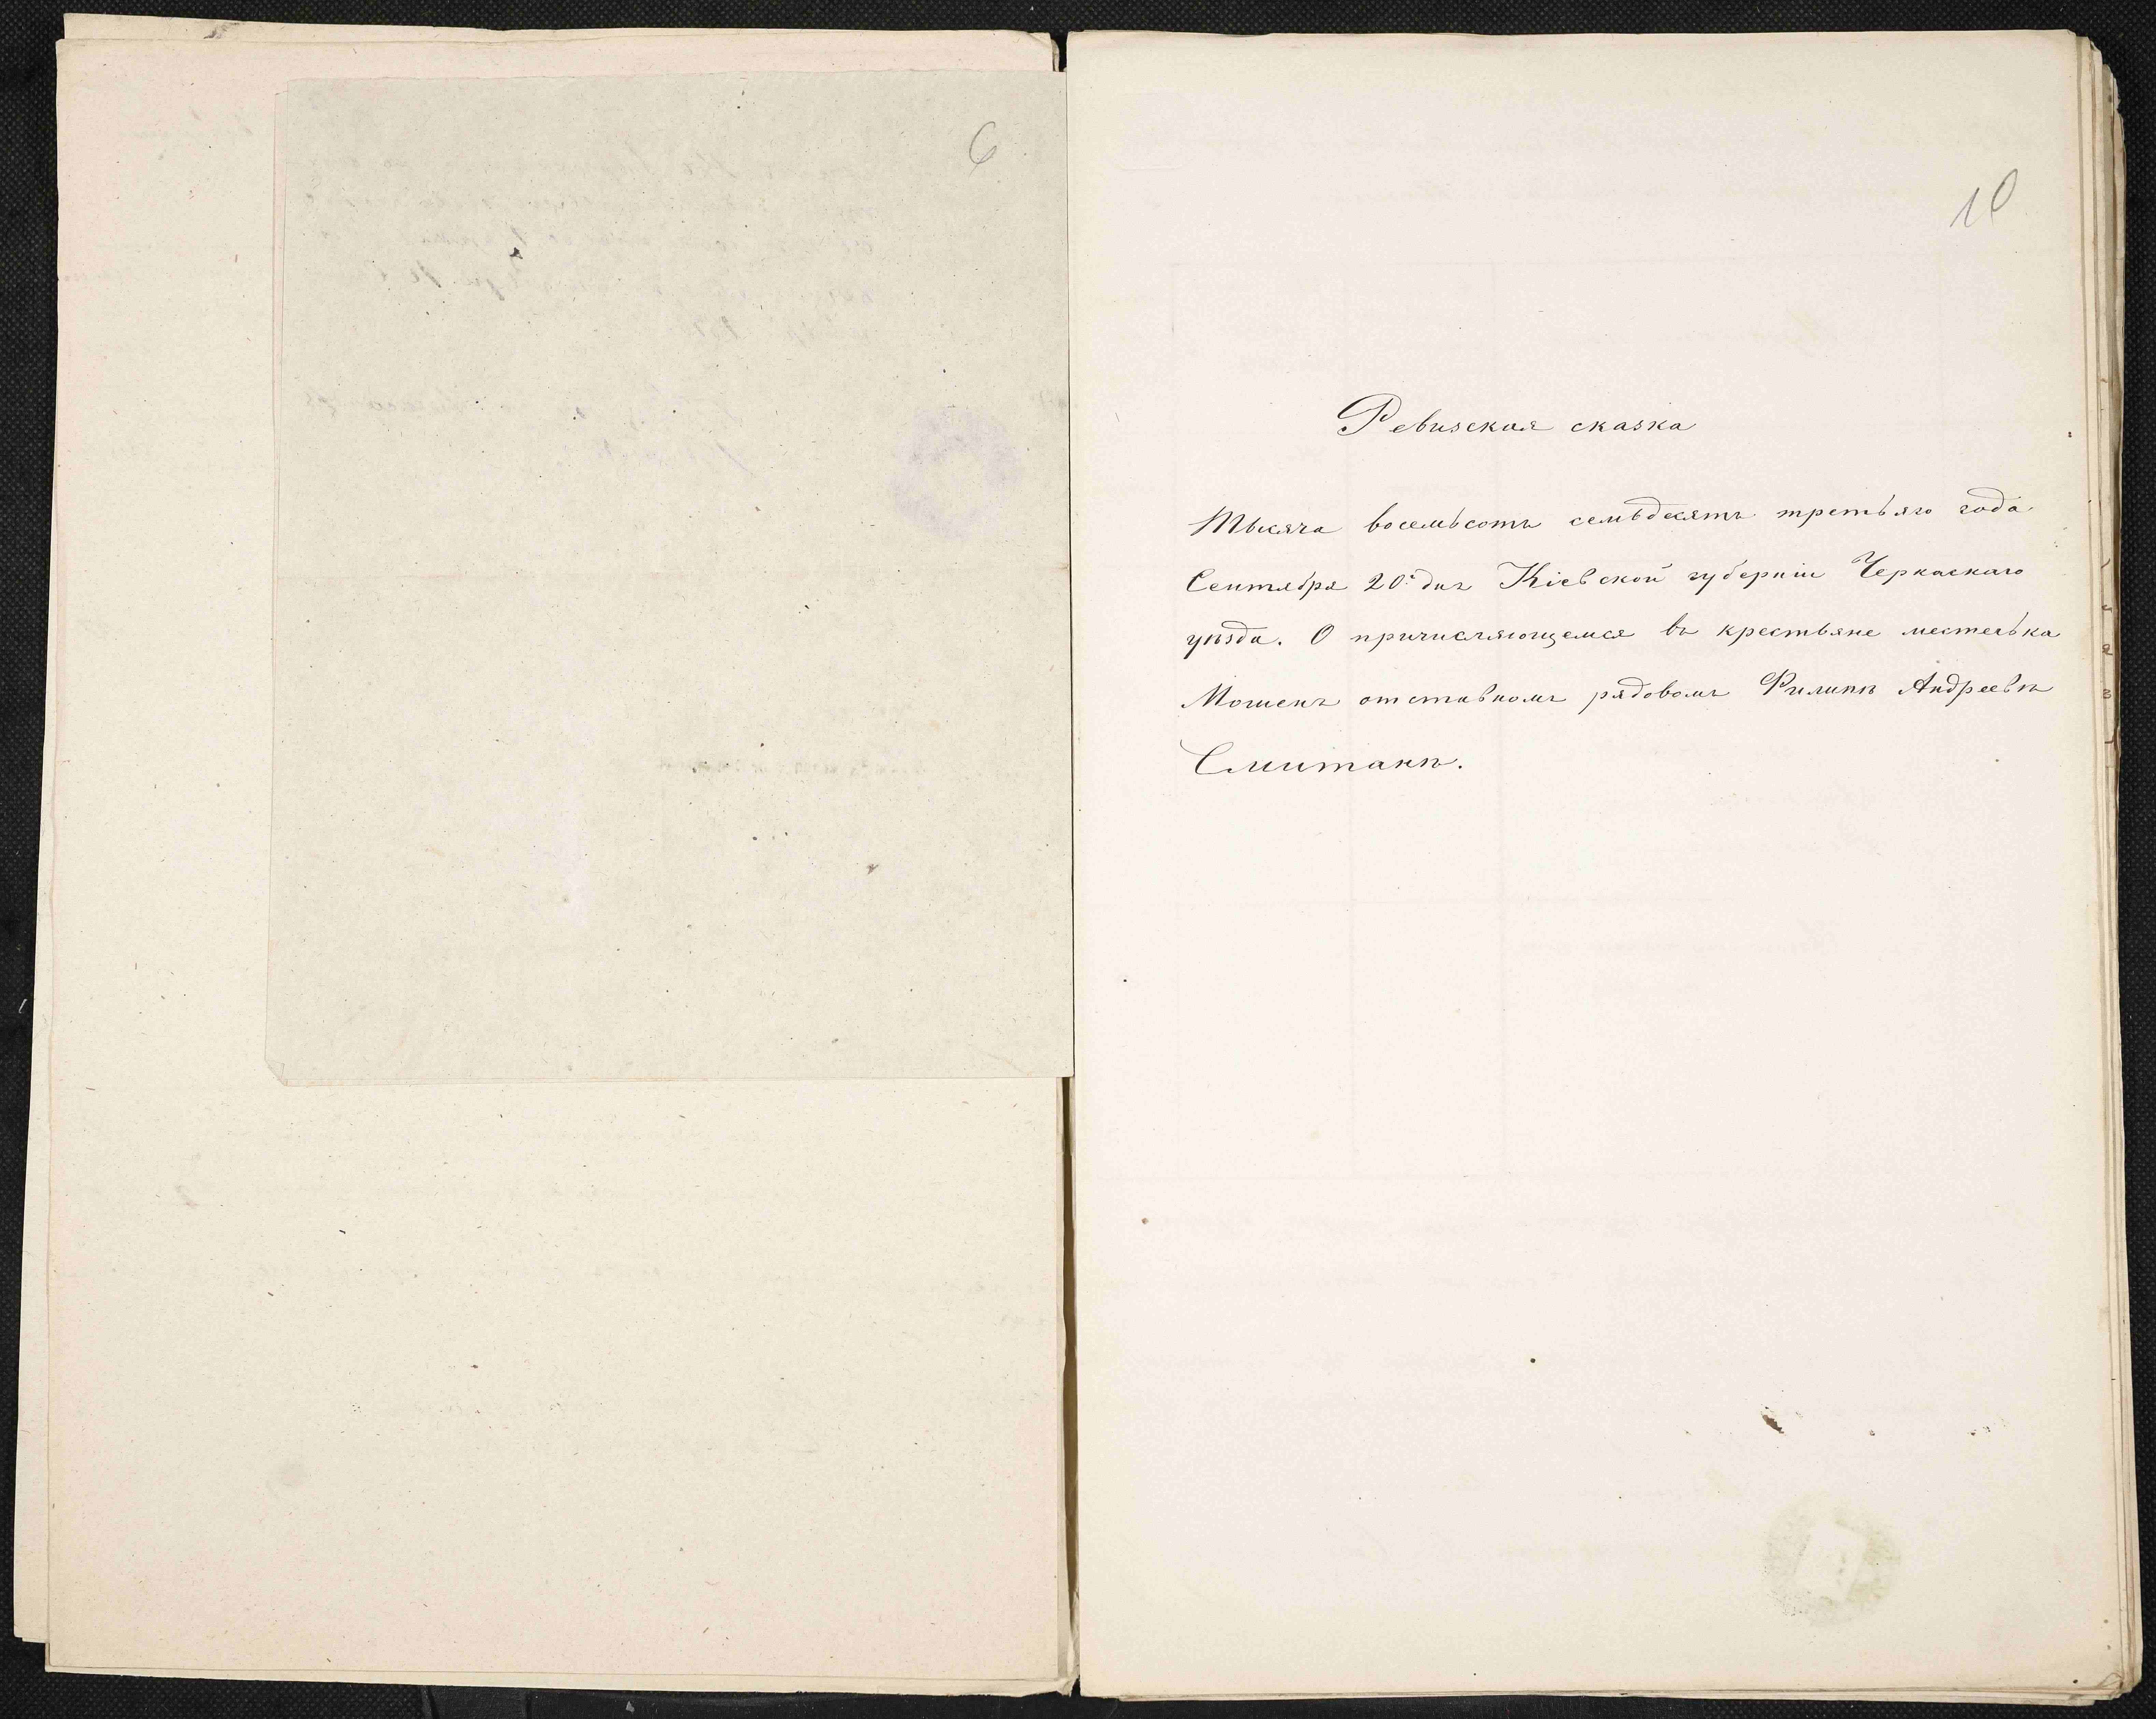 6
10
Ревизская сказка
Тысяча восемьсотъ семьдесятъ третьяго года
Сентября 20го дня Кіевской губерніи Черкаскаго
уѣзда. О причисляющемся въ крестьяне местечька
Мошенъ отставномъ рядовомъ Филипѣ Андреевѣ
Смитанѣ.